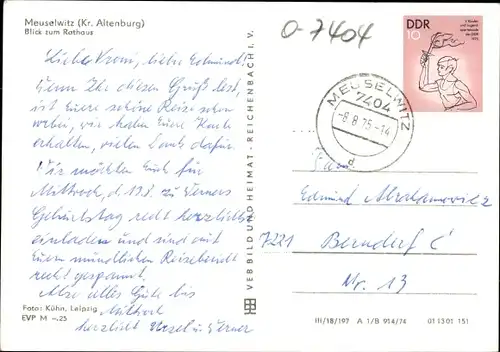 Meuselwitz (Kr. Altenburg)
Blick zum Rathaus
Liebe Vroni, lieber Edmund!
Wenn Ihr diesen Gruß lest,
ist Eure schöne Reise schon
vorbei, wir haben Eure Karte
erhalten, vielen Dank dafür.
Wir möchten Euch für
Mittwoch, d. 13.8. zu Werners
Geburtstag recht herzlichst
einladen und sind mit
Euern mündlichen Reisebericht
recht gespannt.
Also alles Gute bis
Mittwoch
herzlichst Ursel u. Werner
Foto: Kühn, Leipzig
EVP M -.25
VEB BILD UND HEIMAT · REICHENBACH I. V.
O-7404
DDR
10
MEUSELWITZ
7404
-8.8.75-14
d
Fam.
Edmund Abrahamowicz
7221 Berndorf
Nr. 13
III/18/197 A 1/B 914/74 01 13 01 151